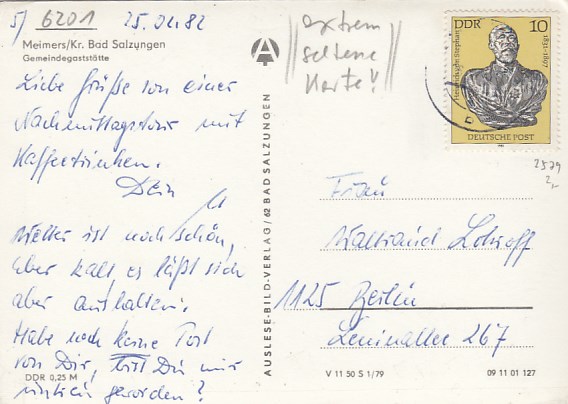 5) 6201 25.04.82
Meimers/Kr. Bad Salzungen
Gemeindegaststätte
Liebe Grüße von einer
Nachmittagstour mit
Kaffeetrinken.
Dein
Wetter ist noch schön,
aber kalt es läßt sich
aber aushalten.
Habe noch keine Post
von Dir, bist Du mir
untreu geworden?
DDR 0,25 M
AUSLESE-BILD-VERLAG/62 BAD SALZUNGEN
extrem
seltene
Karte!
DDR 10
Heinrich von Stephan 1831-1897
DEUTSCHE POST
2579
2,-
Frau
Waltraud
1125 Berlin
Leninallee 267
V 11 50 S 1/79
09 11 01 127